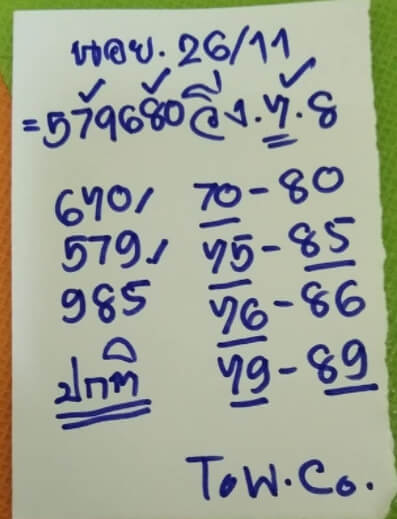 ฮอย. 26/11
=579680วิ่ง.7.8
670/ 70-80
579./ 75-85
985 76-86
ปกติ 79-89
Tow.Co.